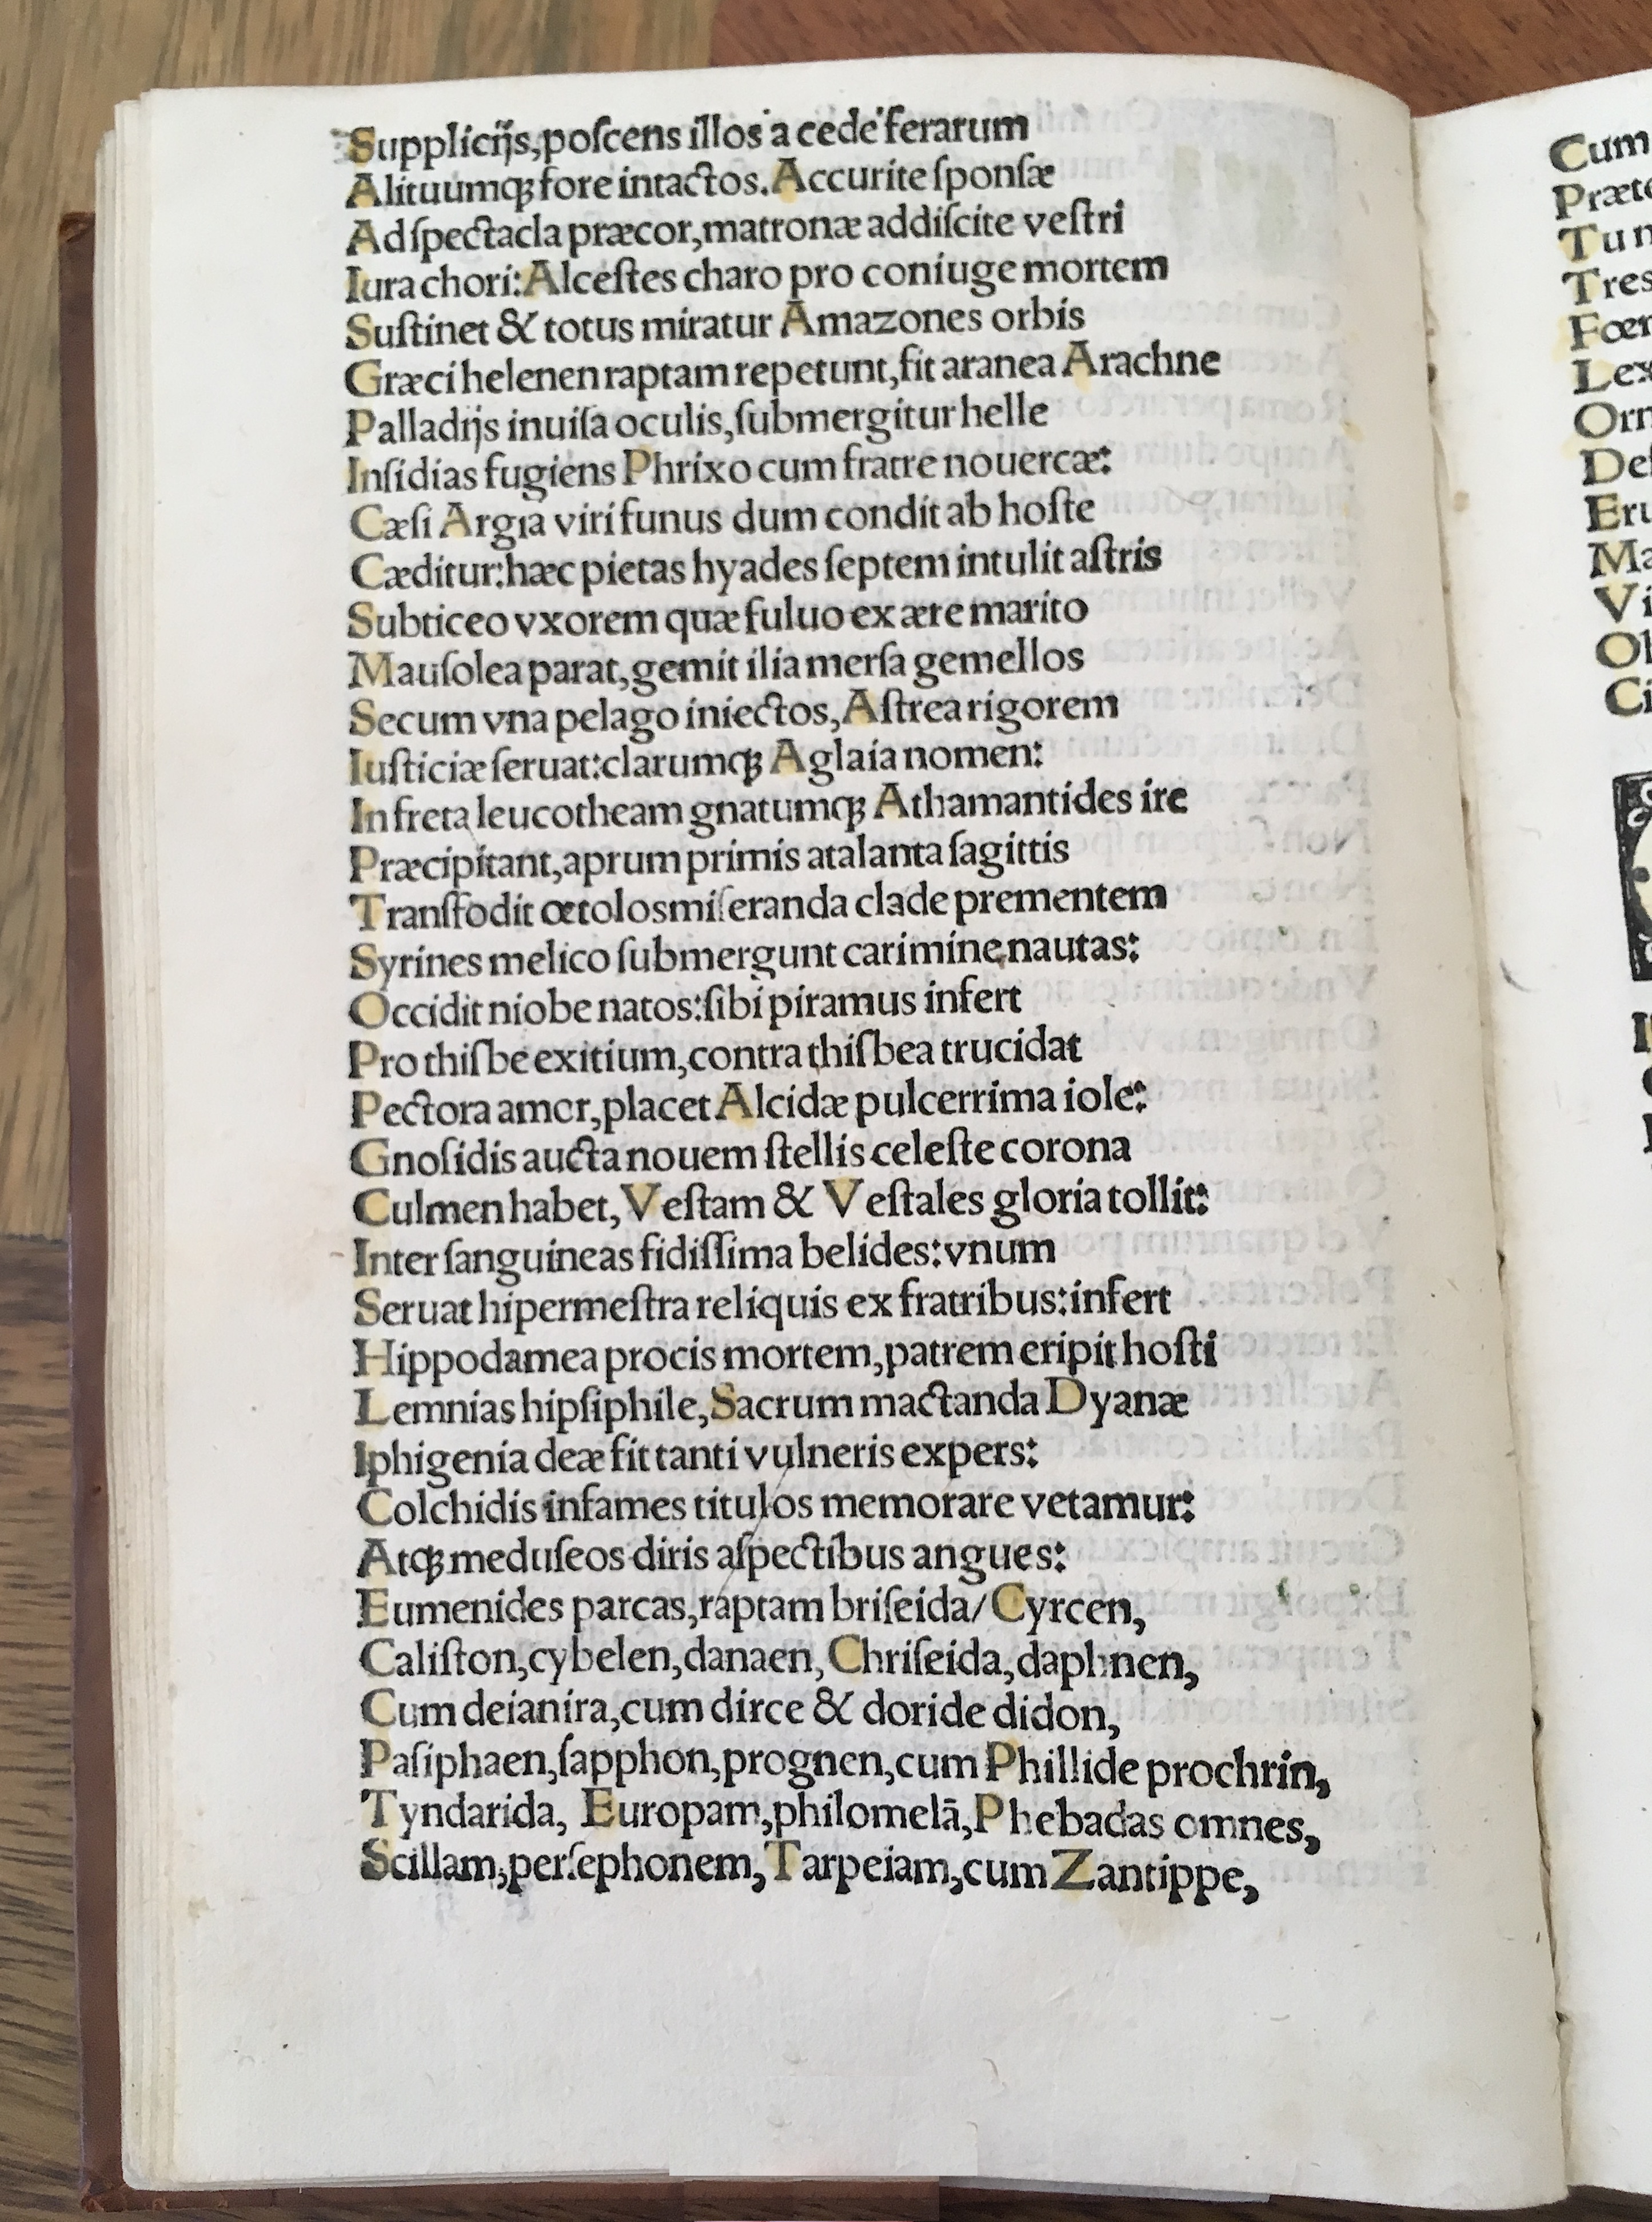 Supplicĳs,poſcens illos a cede ferarum
Alituumqꝫ fore intactos. Accurite ſponſæ
Ad ſpectacla præcor,matronæ addiſcite veſtri
Iura chori: Alceſtes charo pro coniuge mortem
Suſtinet & totus miratur Amazones orbis
Græci helenen raptam repetunt,fit aranea Arachne
Palladĳs inuiſa oculis,ſubmergitur helle
Inſidias fugiens Phrixo cum fratre nouercæ:
Cæſi Argia viri funus dum condit ab hoſte
Cæditur:hæc pietas hyades ſeptem intulit aſtris
Subticeo vxorem quæ fuluo ex ære marito
Mauſolea parat,gemit ilia merſa gemellos
Secum vna pelago iniectos, Aſtrea rigorem
Iuſticiæ ſeruat:clarumqꝫ Aglaia nomen:
In freta leucotheam gnatumqꝫ Athamantides ire
Præcipitant,aprum primis atalanta ſagittis
Tranſfodit œtolos miſeranda clade prementem
Syrines melico ſubmergunt carimine nautas:
Occidit niobe natos:ſibi piramus infert
Pro thiſbe exitium,contra thiſbea trucidat
Pectora amor,placet Alcidæ pulcerrima iole:
Gnoſidis aucta nouem ſtellis celeſte corona
Culmen habet, Veſtam & Veſtales gloria tollit:
Inter ſanguineas fidiſſima belides:vnum
Seruat hipermeſtra reliquis ex fratribus:infert
Hippodamea procis mortem,patrem eripit hoſti
Lemnias hipſiphile,Sacrum mactanda Dyanæ
Iphigenia deæ fit tanti vulneris expers:
Colchidis infames titulos memorare vetamur:
Atqꝫ meduſeos diris aſpectibus angues:
Eumenides parcas,raptam briſeida/ Cyrcen,
Caliſton,cybelen,danaen, Chriſeida,daphnen,
Cum deianira,cum dirce & doride didon,
Paſiphaen,ſapphon,prognen,cum Phillide prochrin,
Tyndarida, Europam,philomelā,Phebadas omnes,
Scillam,perſephonem,Tarpeiam,cum Zantippe,
Cum
Tu
Tres
Lex